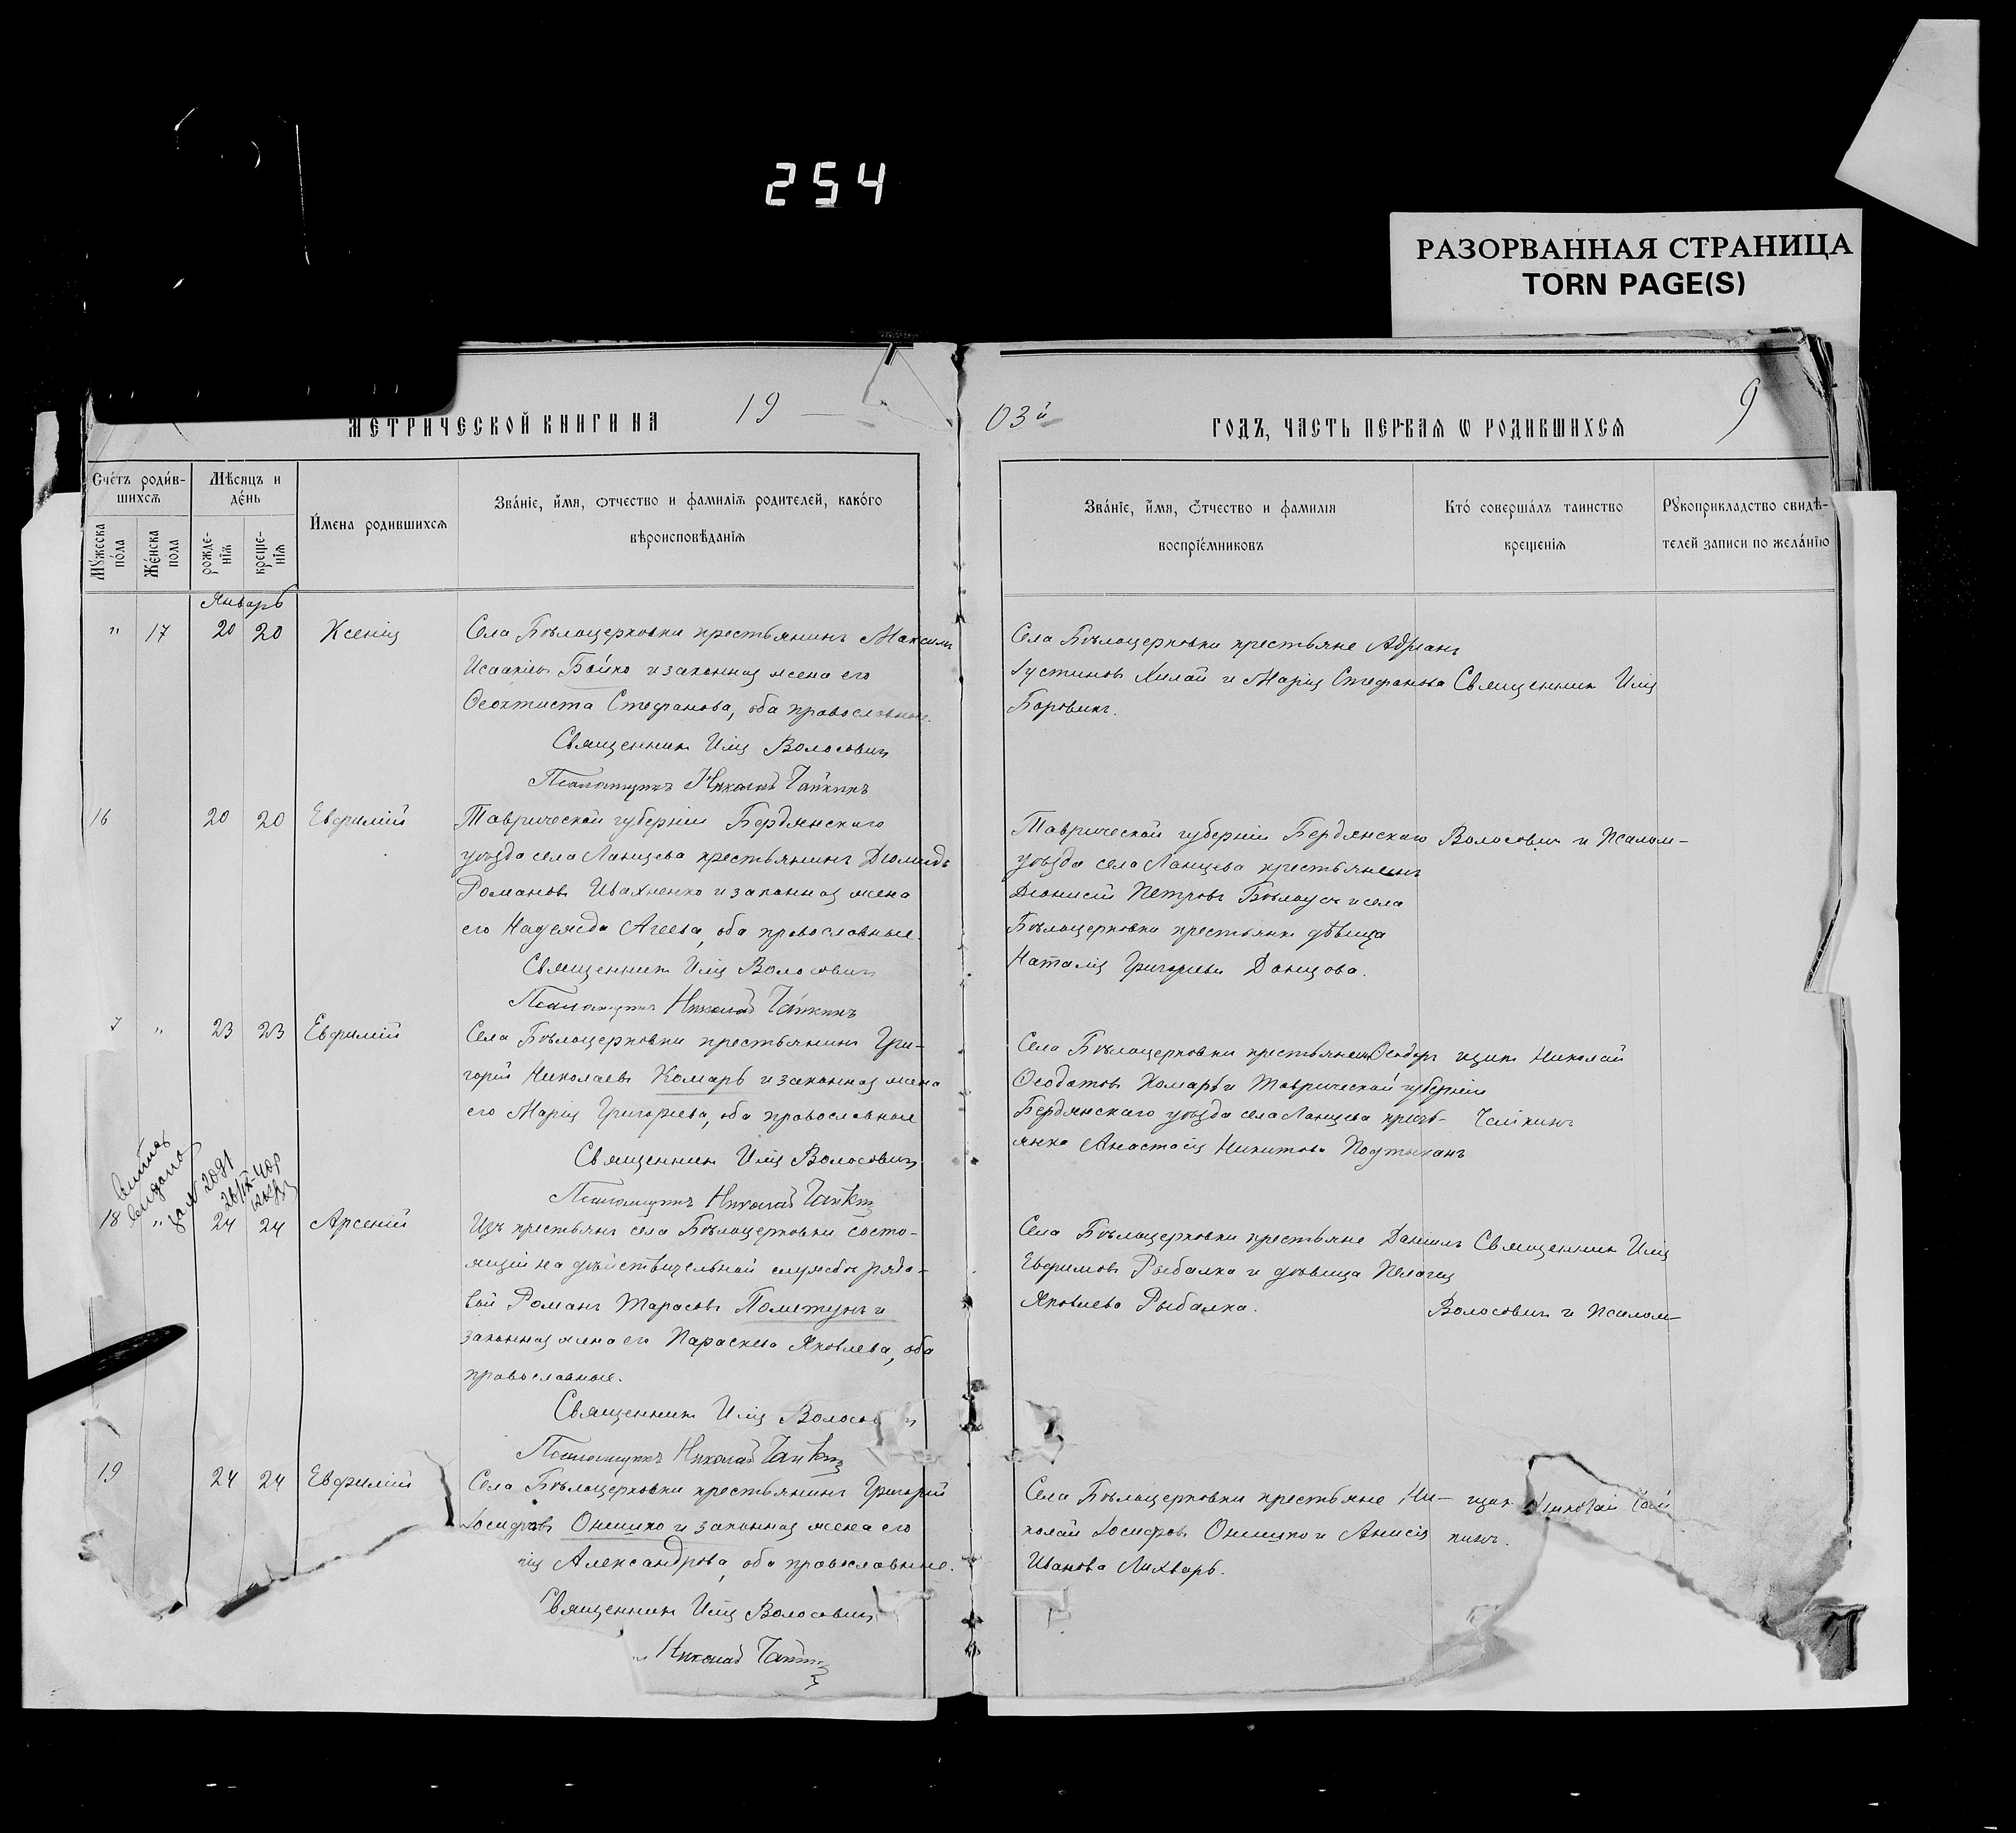 254
РАЗОРВАННАЯ СТРАНИЦА
TORN PAGE(S)
МЕТРИЧЕСКОЙ КНИГИ НА 19
03й ГОДЪ, ЧАСТЬ ПЕРВАЯ Ѡ РОДИВШИХСЯ
9
Сче́тъ роди́в-
шихсѧ
Мѣ́сяцъ и
де́нь
Мꙋ́жеска
по́ла
Же́нска
пола
рожде-
нїѧ
креще-
нїѧ
И҆́мена родившихсѧ
Зва́нїе, и҆́мя, ѻтчество и фамилїѧ родителей, како́го
вѣроисповѣ́данїѧ
Зва́нїе, и҆́мя, ѻ҆́тчество и фамилїя
воспрїе́мниковъ
Кто́ соверша́лъ таинство
крещенїѧ
Рꙋкоприкладство свидѣ-
телей записи по жела́нїю
Январь
" 17 20 20 Ксенія
Села Бѣлоцерковки крестьянинъ Максимъ
Исаакіевъ Бойко и законная жена его
Ѳеоктиста Стефанова, оба православные.
Священникъ Илія Волосовичъ
Псаломщикъ Николай Чайкинъ
Села Бѣлоцерковки крестьяне Адріанъ
Іустиновъ Хилай и Марія Стефанова Священникъ Илія
Боровикъ.
16 20 20 Евфимій
Таврической губерніи Бердянскаго
уѣзда села Ланцева крестьянинъ Діомидъ
Романовъ Ивахненко и законная жена
его Надежда Агеева, оба православные.
Священникъ Илія Волосовичъ
Псаломщикъ Николай Чайкинъ
Таврической губерніи Бердянскаго Волосовичъ и Псалом-
уѣзда села Ланцева крестьянинъ
Діонисій Петровъ Бѣлоусъ и села
Бѣлоцерковки крестьянка дѣвица
Наталія Григорьева Данцова.
7 " 23 23 Евфимій
Села Бѣлоцерковки крестьянинъ Гри-
горій Николаевъ Комаръ и законная жена
его Марія Григорьева, оба православные
Священникъ Илія Волосовичъ
Псаломщикъ Николай Чайкинъ
Села Бѣлоцерковки крестьянинъ Ѳеодоръ щикъ Николай
Ѳеодотовъ Комаръ и Таврической губерніи
Бердянскаго уѣзда села Ланцева кресть- Чайкинъ
янка Анастасія Никитова
выдано
18 " 24 24 Арсеній
Изъ крестьянъ села Бѣлоцерковки, состо-
ящій на дѣйствительной службѣ рядо-
вой Романъ Тарасовъ Полежунъ и
законная жена его Параскева Яковлева, оба
православные.
Священникъ Илія
Псаломщикъ Николай Чайкинъ
Села Бѣлоцерковки крестьяне Даніилъ Священникъ Илія
Евфимовъ Рыбалка и дѣвица Пелагея
Яковлева Рыбалка. Волосовичъ и Псалом-
19 24 24 Евфимій
Села Бѣлоцерковки крестьянинъ Григорій
Іосифовъ Онишко и законная жена его
Александрова, оба православные.
Священникъ Илія Волосовичъ
Николай Чайкинъ
Села Бѣлоцерковки крестьяне Ни- щикъ Николай Чай
колай Іосифовъ Онишко и Анисія кинъ.
Иванова Лихварь.